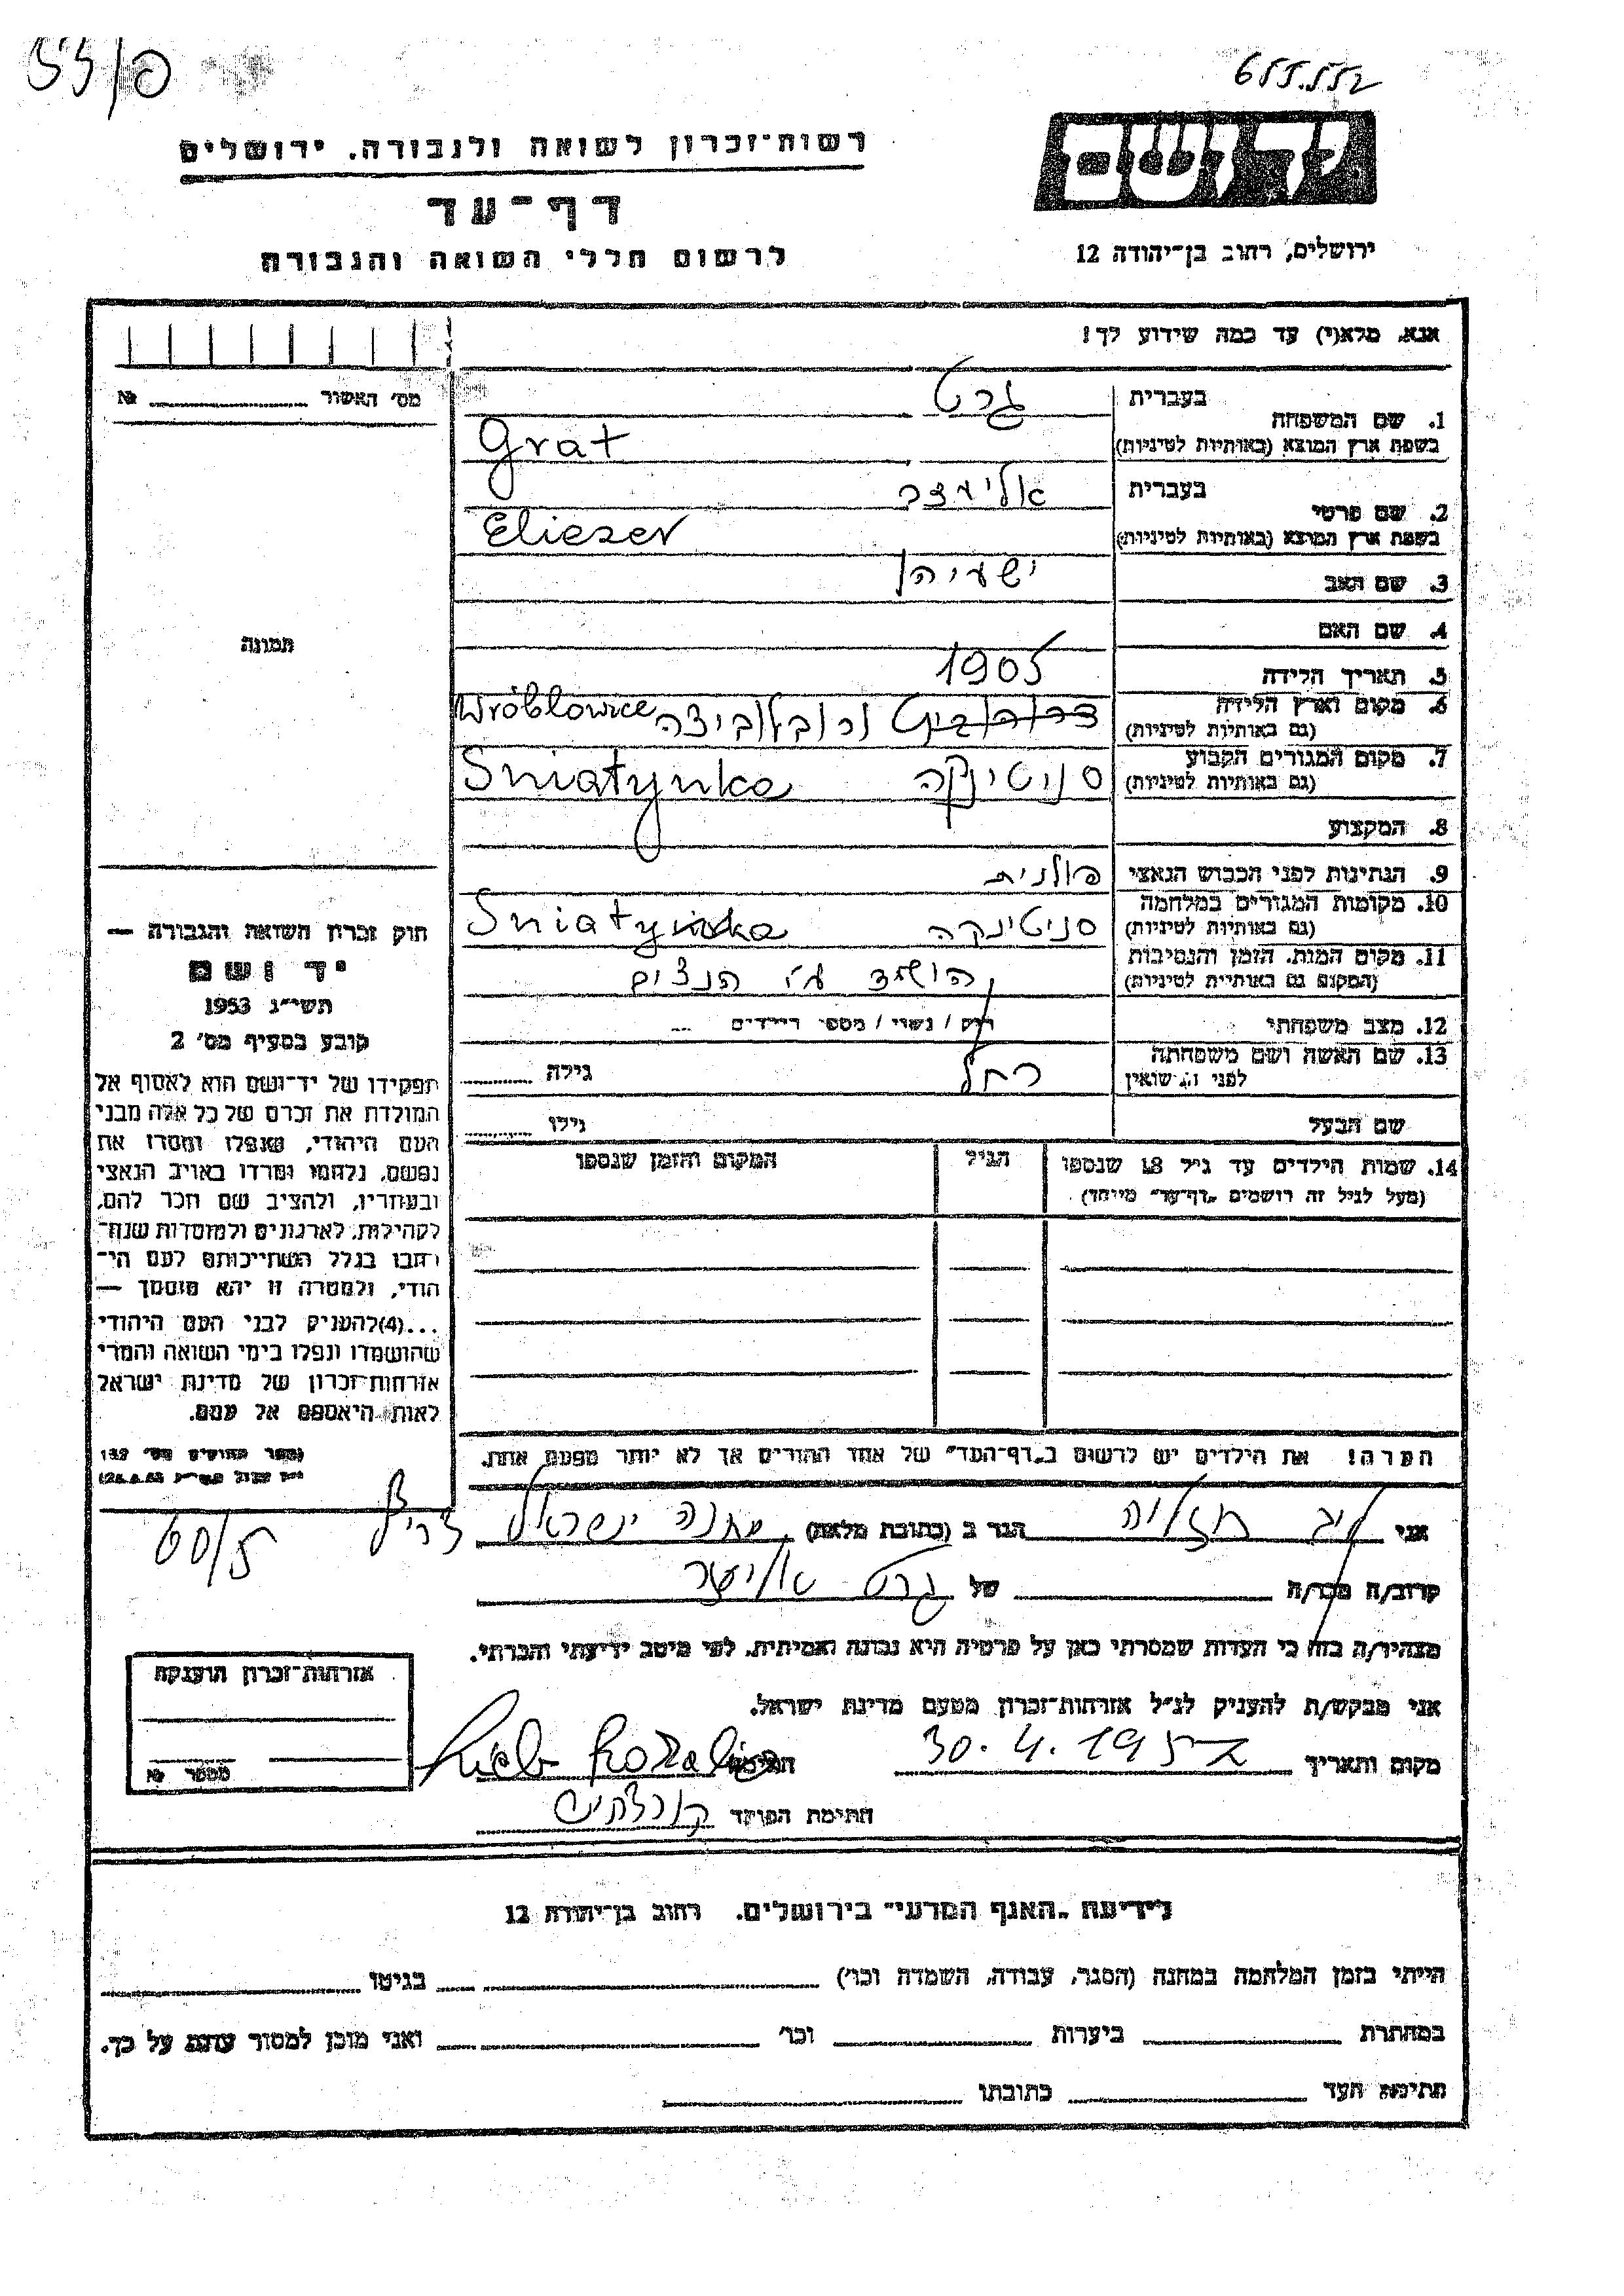 655.552
רשות־זכרון לשואה ולגבורה. ירושלים
דף־עד
לרשום חללי השואה והגבורה
ירושלים, רחוב בן־יהודה 12
אנא, מלא(י) עד כמה שידוע לך!
מס׳ האשור № 
1. שם המשפחה
בעברית גרט
בשפת ארץ המוצא (באותיות לטיניות) Grat
2. שם פרטי
בעברית אליעזר
בשפת ארץ המוצא (באותיות לטיניות) Eliezer
3. שם האב ישעיהו
4. שם האם
5. תאריך הלידה 1905
6. מקום וארץ הלידה
(גם באותיות לטיניות) ורובלוביצה Wróblowice
7. מקום המגורים הקבוע
(גם באותיות לטיניות) סניטינקה Sniatynka
8. המקצוע
9. הנתינות לפני הכבוש הנאצי פולנית
10. מקומות המגורים במלחמה
(גם באותיות לטיניות) סניטינקה Sniatynka
11. מקום המות, הזמן והנסיבות
(המקום גם באותיות לטיניות) הושמד ע״י הנצים
12. מצב משפחתי רוק / נשוי / מספר הילדים
13. שם האשה ושם משפחתה
לפני הנשואין רחל גילה
שם הבעל גילו
14. שמות הילדים עד גיל 18 שנספו הגיל המקום והזמן שנספו
(מעל לגיל זה רושמים „דף־עד״ מיוחד)
הערה! את הילדים יש לרשום ב„דף־העד״ של אחד ההורים אך לא יותר מפעם אחת.
תמונה
חוק זכרון השואה והגבורה —
יד ושם
תשי״ג 1953
קובע בסעיף מס׳ 2
תפקידו של יד־ושם הוא לאסוף אל
המולדת את זכרם של כל אלה מבני
העם היהודי, שנפלו ומסרו את
נפשם, נלחמו ומרדו באויב הנאצי
ובעוזריו, ולהציב שם וזכר להם,
לקהילות, לארגונים ולמוסדות שנח־
רבו בגלל השתייכותם לעם הי־
הודי, ולמטרה זו יהא מוסמך —
...(4)להעניק לבני העם היהודי
שהושמדו ונפלו בימי השואה והמרי
אזרחות־זכרון של מדינת ישראל
לאות היאספם אל עמם.
(ספר החוקים מס׳ 132
60/5
אני ליב רוזליה הגר ב (כתובת מלאה) מחנה ישראל צריף
קרוב/ה מכר/ה של גרט אליעזר
מצהיר/ה בזה כי העדות שמסרתי כאן על פרטיה היא נכונה ואמיתית, לפי מיטב ידיעתי והכרתי.
אני מבקש/ת להעניק לנ״ל אזרחות־זכרון מטעם מדינת ישראל.
מקום ותאריך 30.4.195 חתימה Rozalia
חתימת הפוקד
אזרחות־זכרון הוענקה
מספר №
לידיעת „האגף המדעי״ בירושלים, רחוב בן־יהודה 12
הייתי בזמן המלחמה במחנה (הסגר, עבודה, השמדה וכו׳) בגיטו
במחתרת ביערות וכו׳ ואני מוכן למסור עדות על כך.
חתימת העד כתובתו